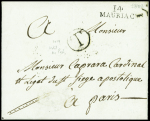 14
MAURIAC
A Monsieur
Monsieur Caprara Cardinal
et Legat du St Siege apostolique
a paris